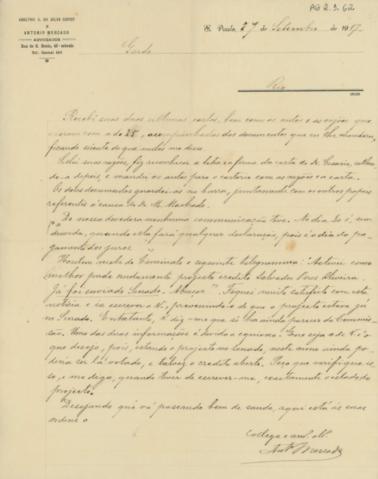 AG 2.3.62
ADOLPHO A. DA SILVA GORDO
E
ANTONIO MERCADO
ADVOGADOS
Rua de S. Bento, 45 - sobrado
S. Paulo, 27 de Setembro de 1917.
Gordo
Rio
Recebi suas duas ultimas cartas, bem como os autos e as razões que
vieram com a de 25, acompanhadas dos documentos que eu lhe mandára,
ficando sciente de que tudo me disse.
Li suas razões, fiz reconhecer a letra e firma da carta do Dr.
a depois, e mandei os autos para o cartorio com as razões e a carta.
Os dois documentos guardei-os na burra, juntamente com os outros papeis
referentes á causa do Dr. M. Machado.
De nosso devedor nenhuma communicação tive. No dia 30 é, sem
duvida, quando elle fará qualquer declaração, pois é o dia do pa-
gamento dos juros.
Hontem recebi do o seguinte telegramma: "
melhor pude andamento projecto credito Salvador Oliveira.
Já foi enviado Senado. Abraços". Fiquei muito satisfeito com esta
noticia e ia escrever a V., prevenindo-o de que o projecto estava já
no Senado. Entretanto, V. diz-me que só lha ainda parecer da Commis-
são. Uma das duas informações é devida a equivoco. Que seja a de V. é o
que desejo, pois, estando o projecto no Senado, neste mez ainda po-
deria ser lá votado, e talvez o credito aberto. Peço que verifique is-
so, e me diga, quando tiver de escrever-me, exactamente o estado do
projecto.
Desejando que vá passando bem de saude, aqui está ás suas
ordens o
Collega e am.º
Ant. Mercado